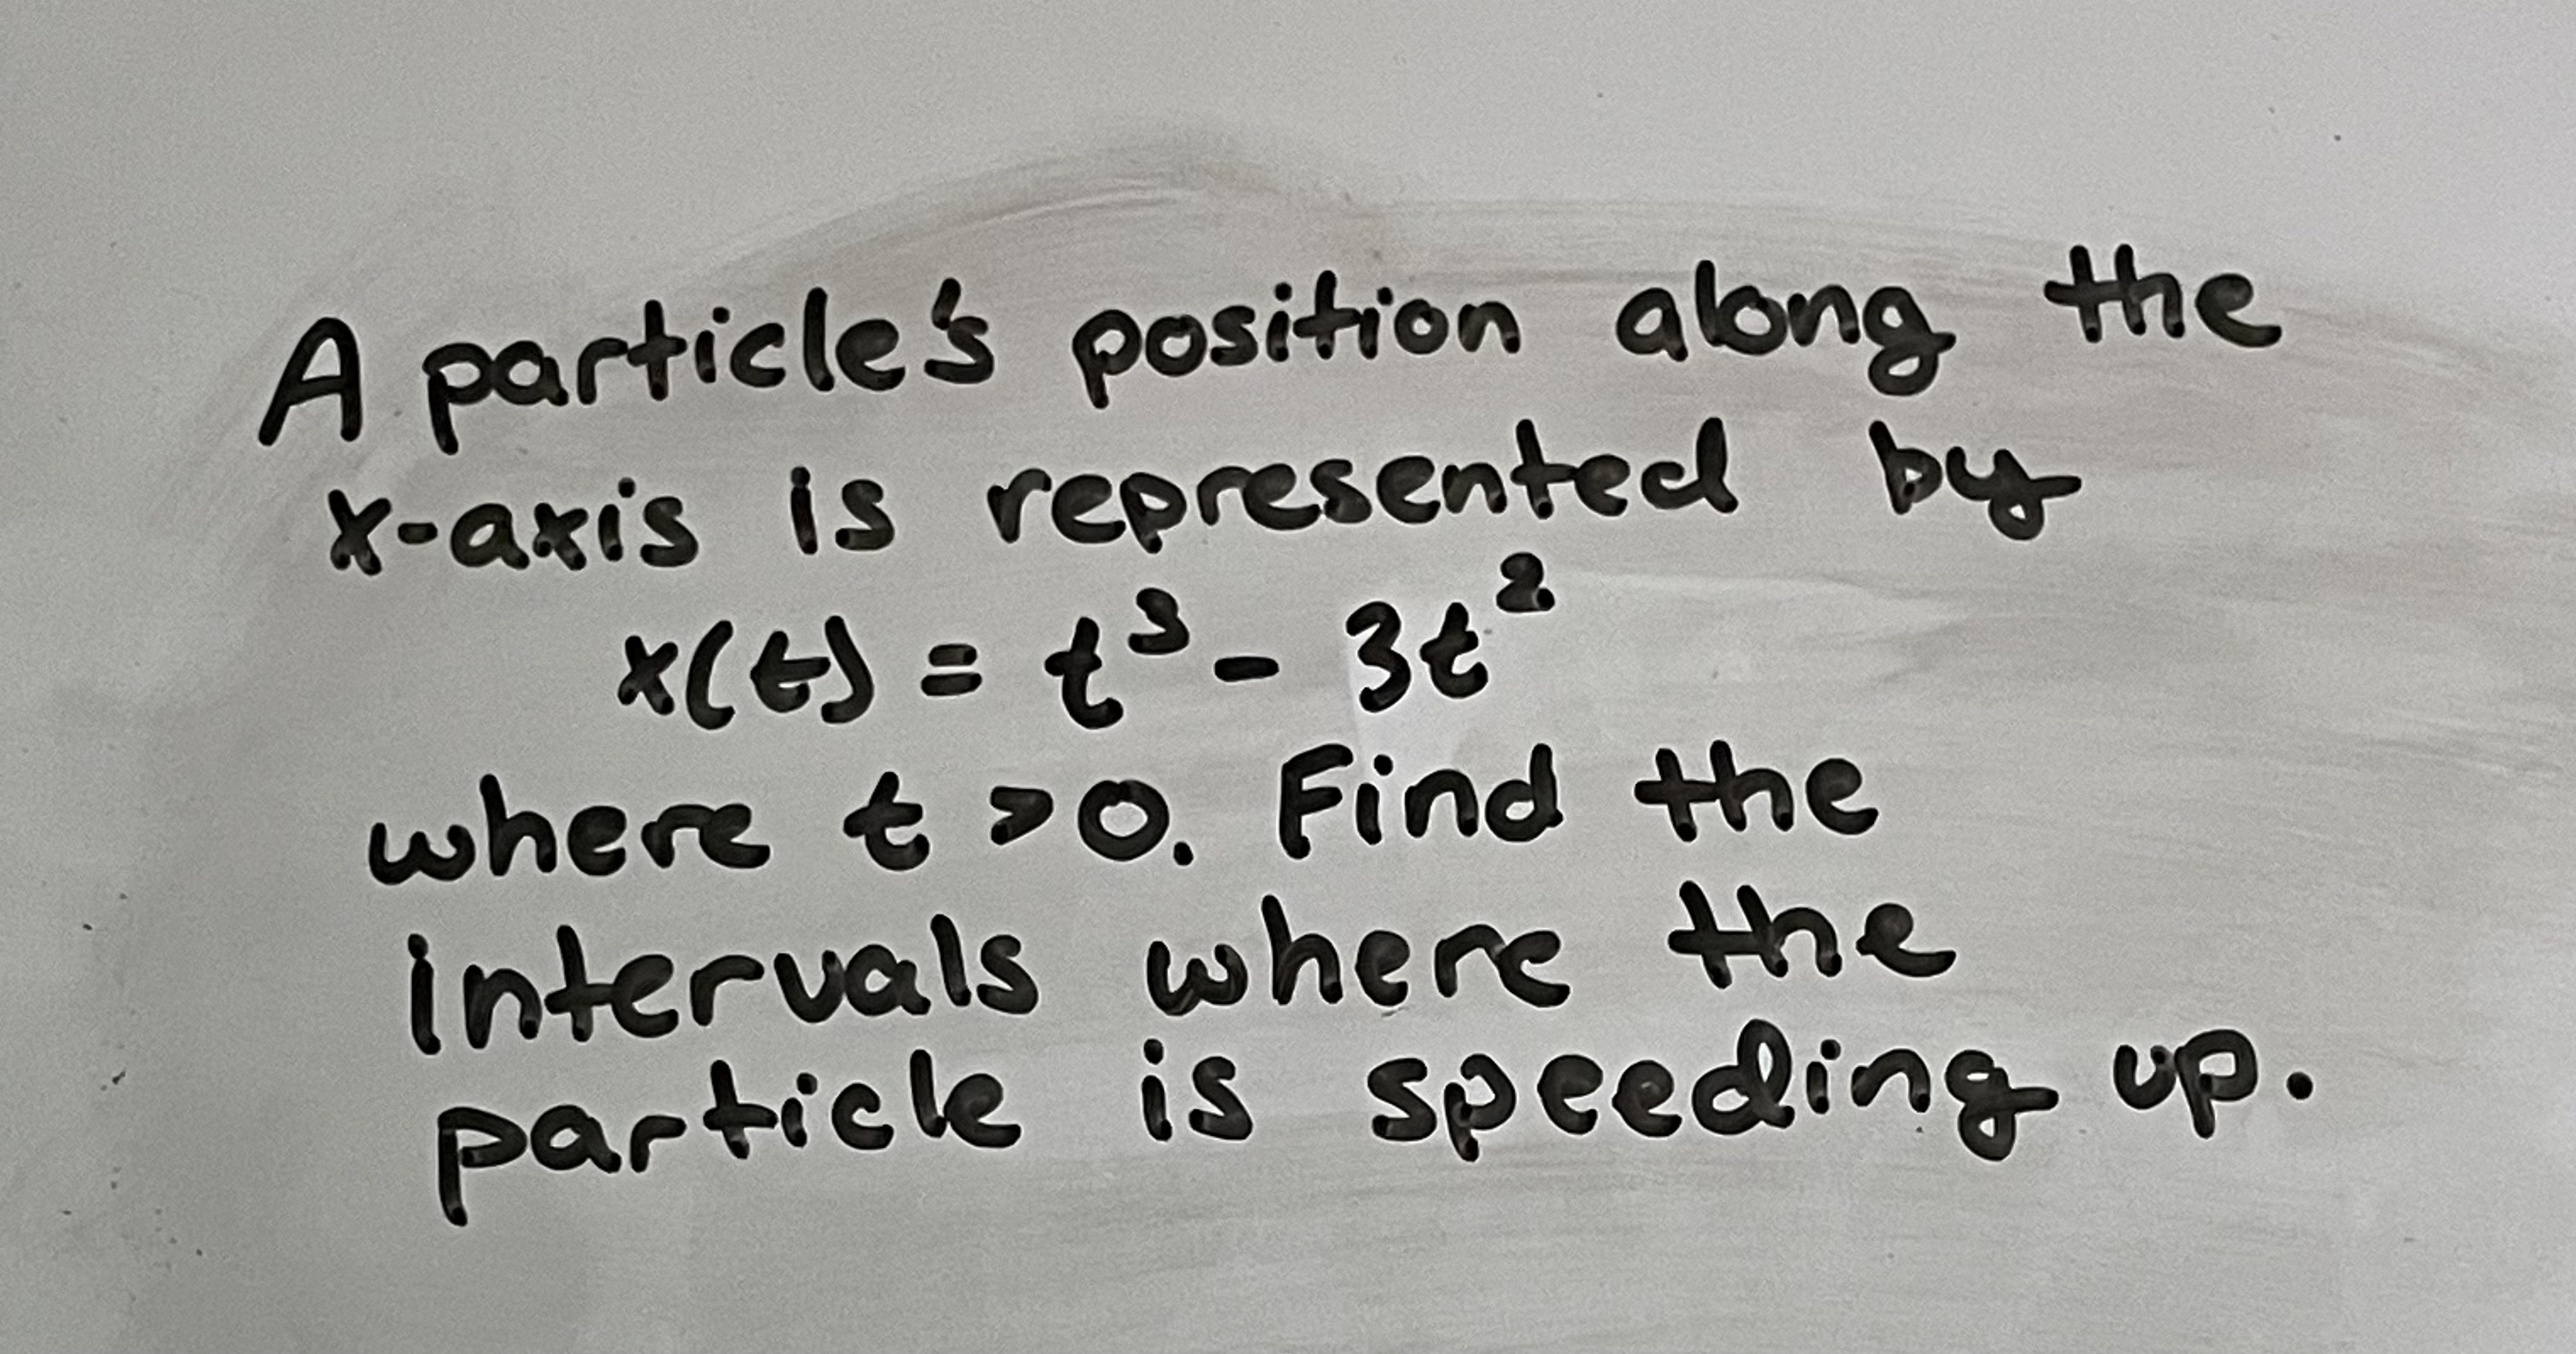 A particle's position along the
x-axis is represented by
x(t) = t³ - 3t²
where t > 0. Find the
intervals where the
particle is speeding up.